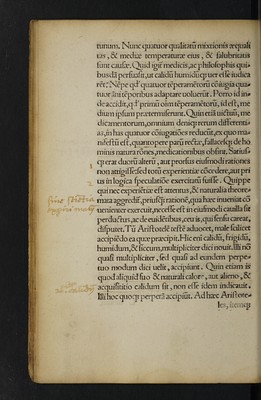 tutum. Nunc quatuor qualitatū mixtionis æquali
tas, & mediæ temperaturæ eius, & salubritatis
sunt causæ. Quid igit̃ medicis, ac philosophis qui
busdā persuasit, ut calidū humidūq́; uer esse iudica
tuor anni tēporibus adaptare uoluerūt. Porro id in-
de accidit, q primū oīm tēperamētorū, id est, me
dium ipsum prætermiserunt. Quin etiā uictuū, me
dicamentorum, omnium deniq; rerum differenti-
as, in has quatuor cōiugatiōes reducūt, ex quo ma
nifestū est, quantopere parū recta, fallaxq́; de ho
minis natura rōnes, medicationibus obsint. Satius
q́; erat duorū alterū, aut prorsus eiusmodi rationes
non attigisse, sed totū experientiæ cōcedere, aut pri
us in logica speculatiōe exercitatū fuisse. Quippe
qui nec experiētiæ est attentus, & naturalia theore-
mata aggredit̃, priusq̃ rationē, qua hæc inueniri cō
uenienter exercuit, necesse est in eiusmodi cauilla sit
perductus, ac de euidētibus, ceu is, qui sensu careat,
disputet. Tū Aristotelē testē aduocet, male scilicet
accipiēdo ea quæ præcipit. Hic enī calidū, frigidū,
humidum, & siccum, multipliciter dici nouit. Illi nō
quasi multipliciter, sed quasi ad eundem perpe-
tuo modum dici uelit, accipiunt. Quin etiam is
quod aliquid suo & naturali calore, aut alieno, &
acquisititio calidum sit, non esse idem indicauit.
Illi hoc quoq; perperā accipiūt. Ad hæc Aristote-
les, itemq́;